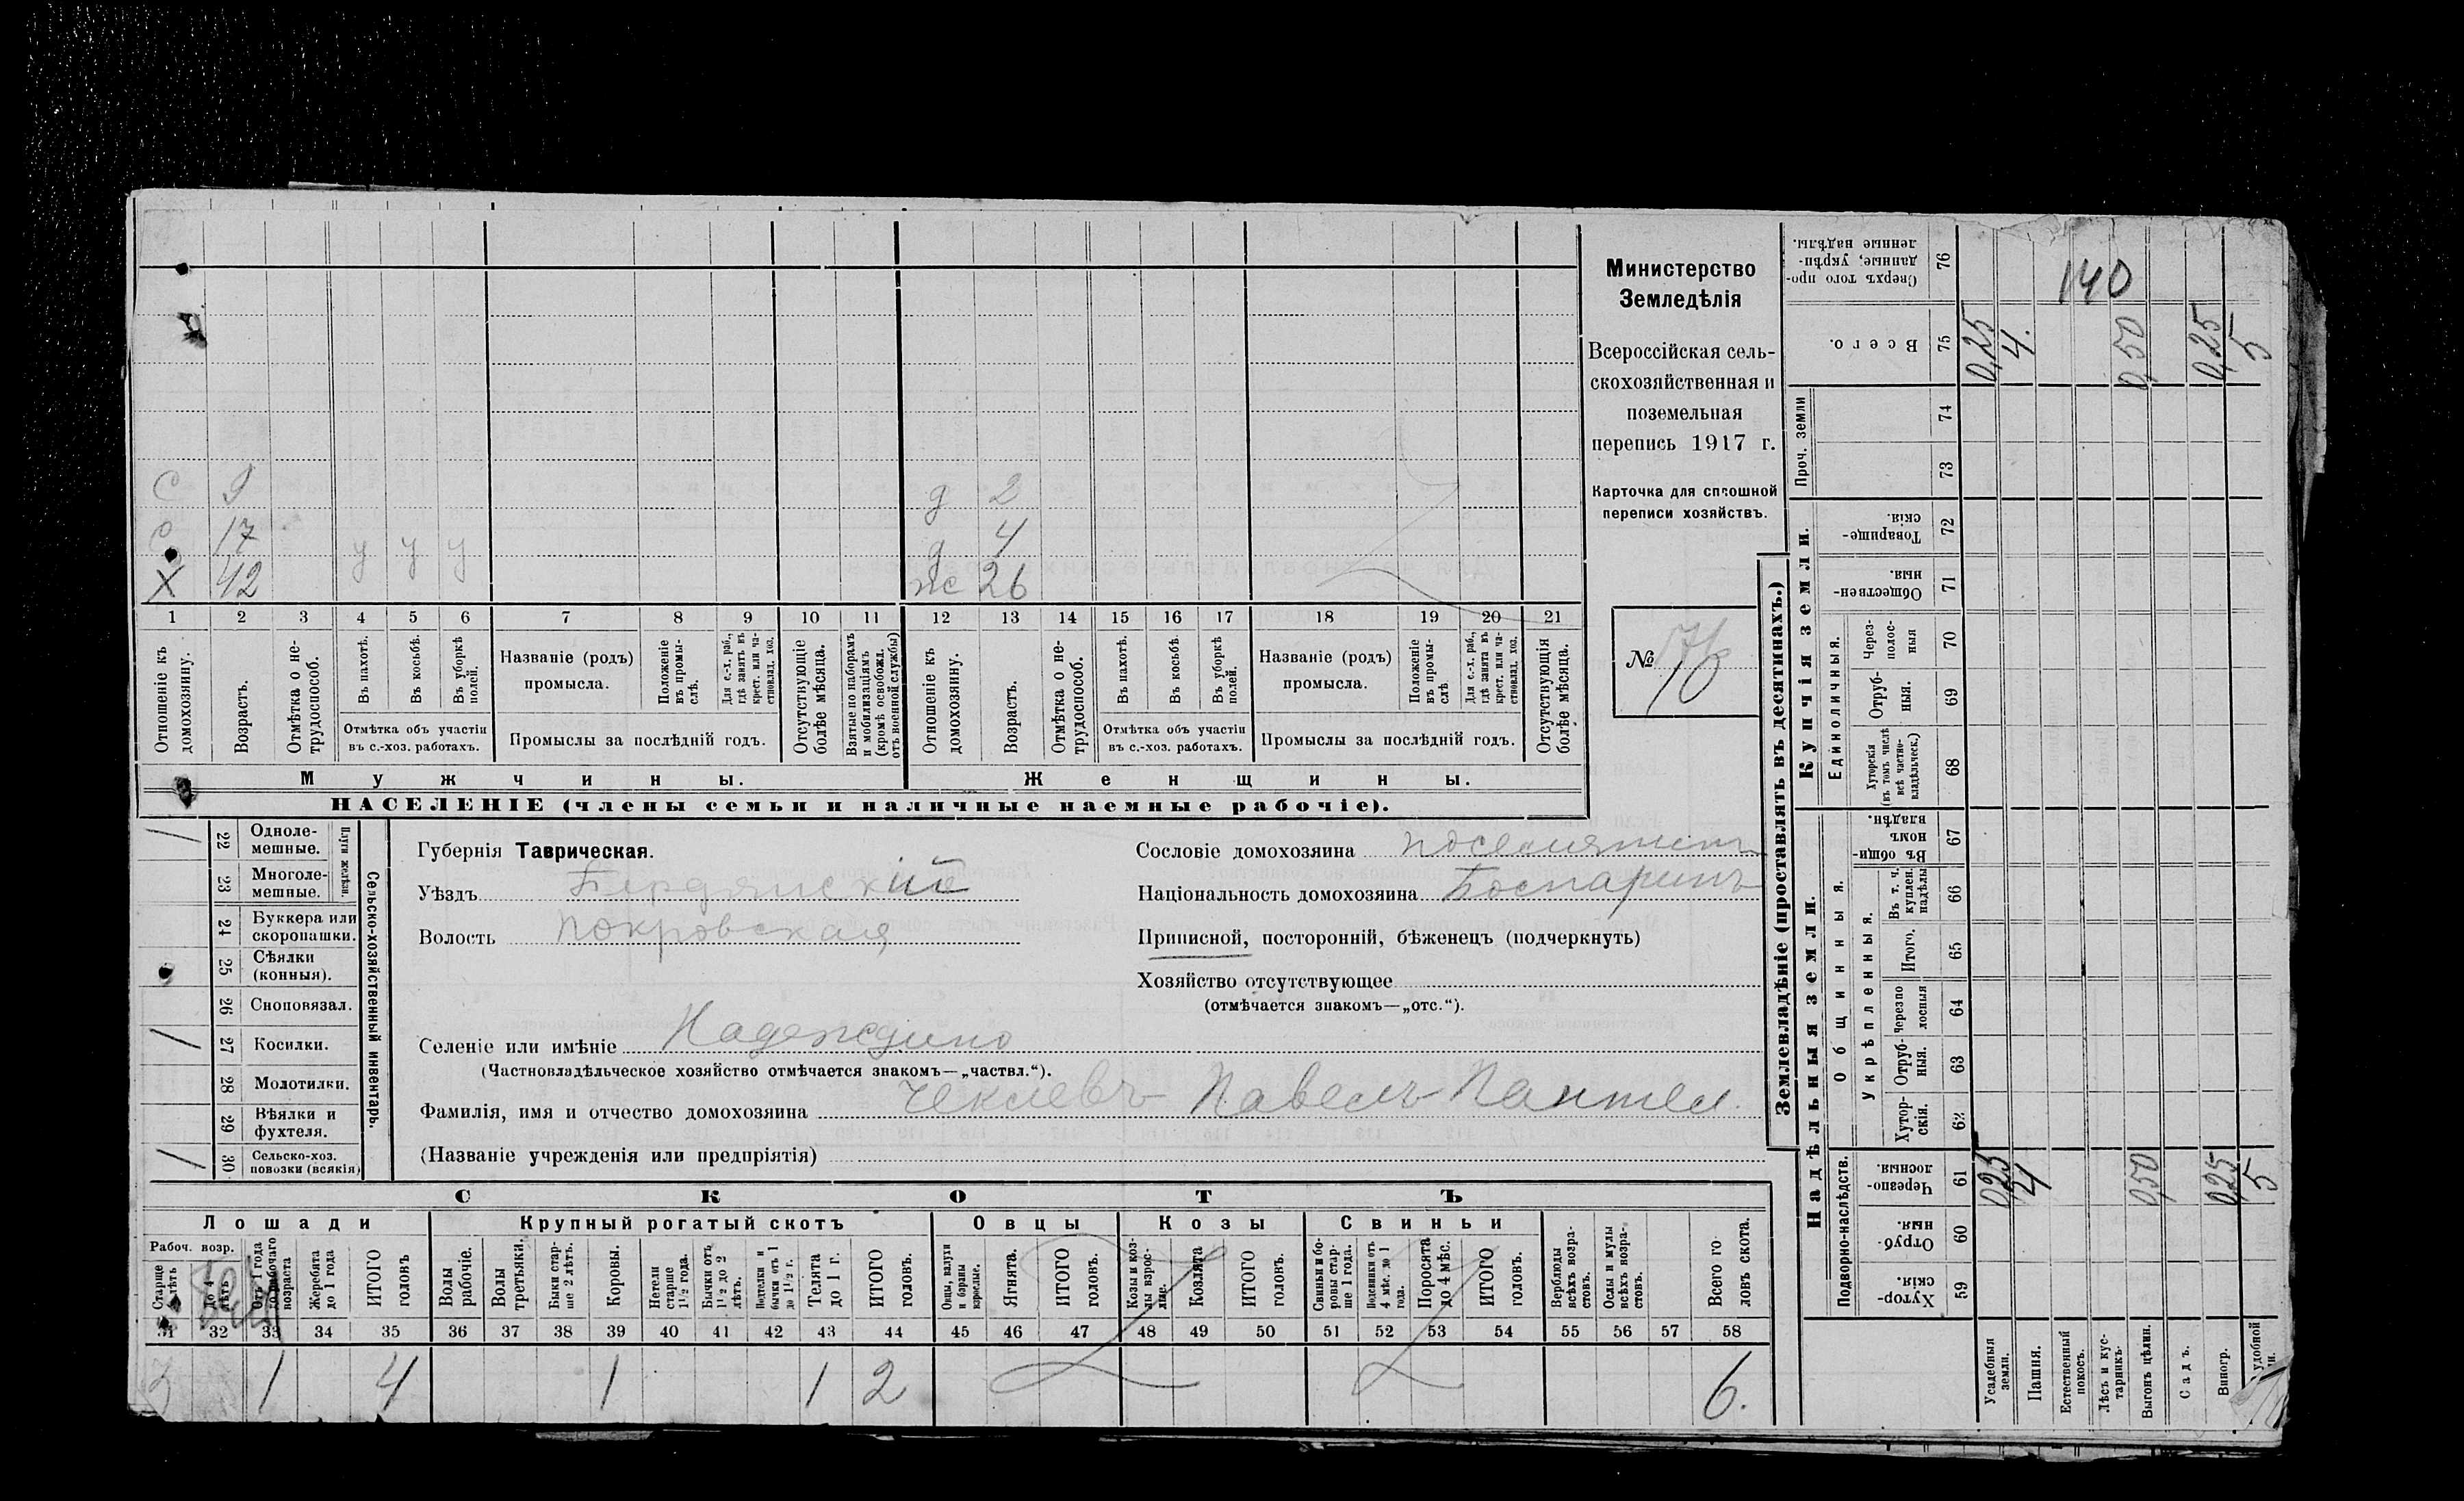 Министерство
Земледѣлія
Всероссійская сель-
скохозяйственная и
поземельная
перепись 1917 г.
Карточка для сплошной
переписи хозяйствъ.
№ 76
С 9 д 2
С 17 у у у д 4
Х 42 ж 26
1 2 3 4 5 6 7 8 9 10 11 12 13 14 15 16 17 18 19 20 21
Отношеніе къ домохозяину.
Возрастъ.
Отмѣтка о не-трудоспособ.
Въ пахотѣ.
Въ косьбѣ.
Въ уборкѣ полей.
Отмѣтка объ участіи
въ с.-хоз. работахъ.
Названіе (родъ)
промысла.
Положеніе въ промы-слѣ.
Для с.-х. раб., гдѣ занятъ въ крест. или ча-стновлад. хоз.
Промыслы за послѣдній годъ.
Отсутствующіе болѣе мѣсяца.
Взятые по наборамъ и мобилизаціямъ (кромѣ освобожд. отъ военной службы)
Отношеніе къ домохозяину.
Возрастъ.
Отмѣтка о не-трудоспособ.
Въ пахотѣ.
Въ косьбѣ.
Въ уборкѣ полей.
Отмѣтка объ участіи
въ с.-хоз. работахъ.
Названіе (родъ)
промысла.
Положеніе въ промы-слѣ
Для с.-х. раб., гдѣ занята въ крест. или ча-стновлад. хоз.
Промыслы за послѣдній годъ.
Отсутствующія болѣе мѣсяца.
Мужчины.
Женщины.
НАСЕЛЕНІЕ (члены семьи и наличные наемные рабочіе).
Сельско-хозяйственный инвентарь.
Плуги желѣзн.
/ 22 Одноле-мешные.
23 Многоле-мешные.
24 Буккера или скоропашки.
25 Сѣялки (конныя).
26 Сноповязал.
/ 27 Косилки.
28 Молотилки.
29 Вѣялки и фухтеля.
/ 30 Сельско-хоз. повозки (всякія)
Губернія Таврическая.
Уѣздъ Бердянскій
Волость Покровская
Сословіе домохозяина поселянинъ
Національность домохозяина Болгаринъ
Приписной, посторонній, бѣженецъ (подчеркнуть)
Хозяйство отсутствующее
(отмѣчается знакомъ—„отс.“).
Селеніе или имѣніе Надеждино
(Частновладѣльческое хозяйство отмѣчается знакомъ—„частвл.“).
Фамилія, имя и отчество домохозяина Павелъ Пантел.
(Названіе учрежденія или предпріятія)
СКОТЪ
Лошади
Крупный рогатый скотъ
Овцы
Козы
Свиньи
Рабоч. возр.
Старше 4 лѣтъ
До 4 лѣтъ
Отъ 1 года до рабочаго возраста
Жеребята до 1 года
ИТОГО головъ
Волы рабочіе.
Волы третьяки.
Быки стар-ше 2 лѣтъ.
Коровы.
Нетели старше 1 1/2 года.
Бычки отъ 1 1/2 до 2 лѣтъ.
Подтелки и бычки отъ 1 до 1 1/2 г.
Телята до 1 г.
ИТОГО головъ.
Овцы, валухи и бараны взрослые.
Ягнята.
ИТОГО головъ.
Козы и коз-лы взрос-лые.
Козлята
ИТОГО головъ.
Свиньи и бо-ровы стар-ше 1 года.
Подсвинки отъ 4 мѣс. до 1 года.
Поросята до 4 мѣс.
ИТОГО головъ.
Верблюды всѣхъ возра-стовъ.
Ослы и мулы всѣхъ возра-стовъ.
Всего го-ловъ скота.
31 32 33 34 35 36 37 38 39 40 41 42 43 44 45 46 47 48 49 50 51 52 53 54 55 56 57 58
3 1 4 1 1 2 6.
Землевладѣніе (проставлять въ десятинахъ.)
Купчія земли.
Надѣльныя земли.
Сверхъ того про-данные, укрѣп-ленные надѣлы. 76
140
Всего. 75
0,25 4. 0,50 0,25 5
Проч. земли
74
73
Товарище-скія. 72
Обществен-ныя. 71
Единоличныя.
Через-полос-ныя 70
Отруб-ныя. 69
Хуторскія (въ томъ числѣ всѣ частно-владѣльческ.) 68
Общинныя.
Въ общин-номъ владѣн. 67
Укрѣпленныя.
Въ т. ч. куплен. надѣлы 66
Итого. 65
Черезпо-лосныя 64
Отруб-ныя. 63
Хутор-скія. 62
Подворно-наслѣдств.
Черезпо-лосныя. 61
0,25 4 0,50 0,25 5
Отруб-ныя. 60
Хутор-скія. 59
Усадебныя земли.
Пашня.
Естественный покосъ.
Лѣсъ и кус-тарникъ.
Выгонъ цѣлин.
Садъ.
Виногр.
удобной